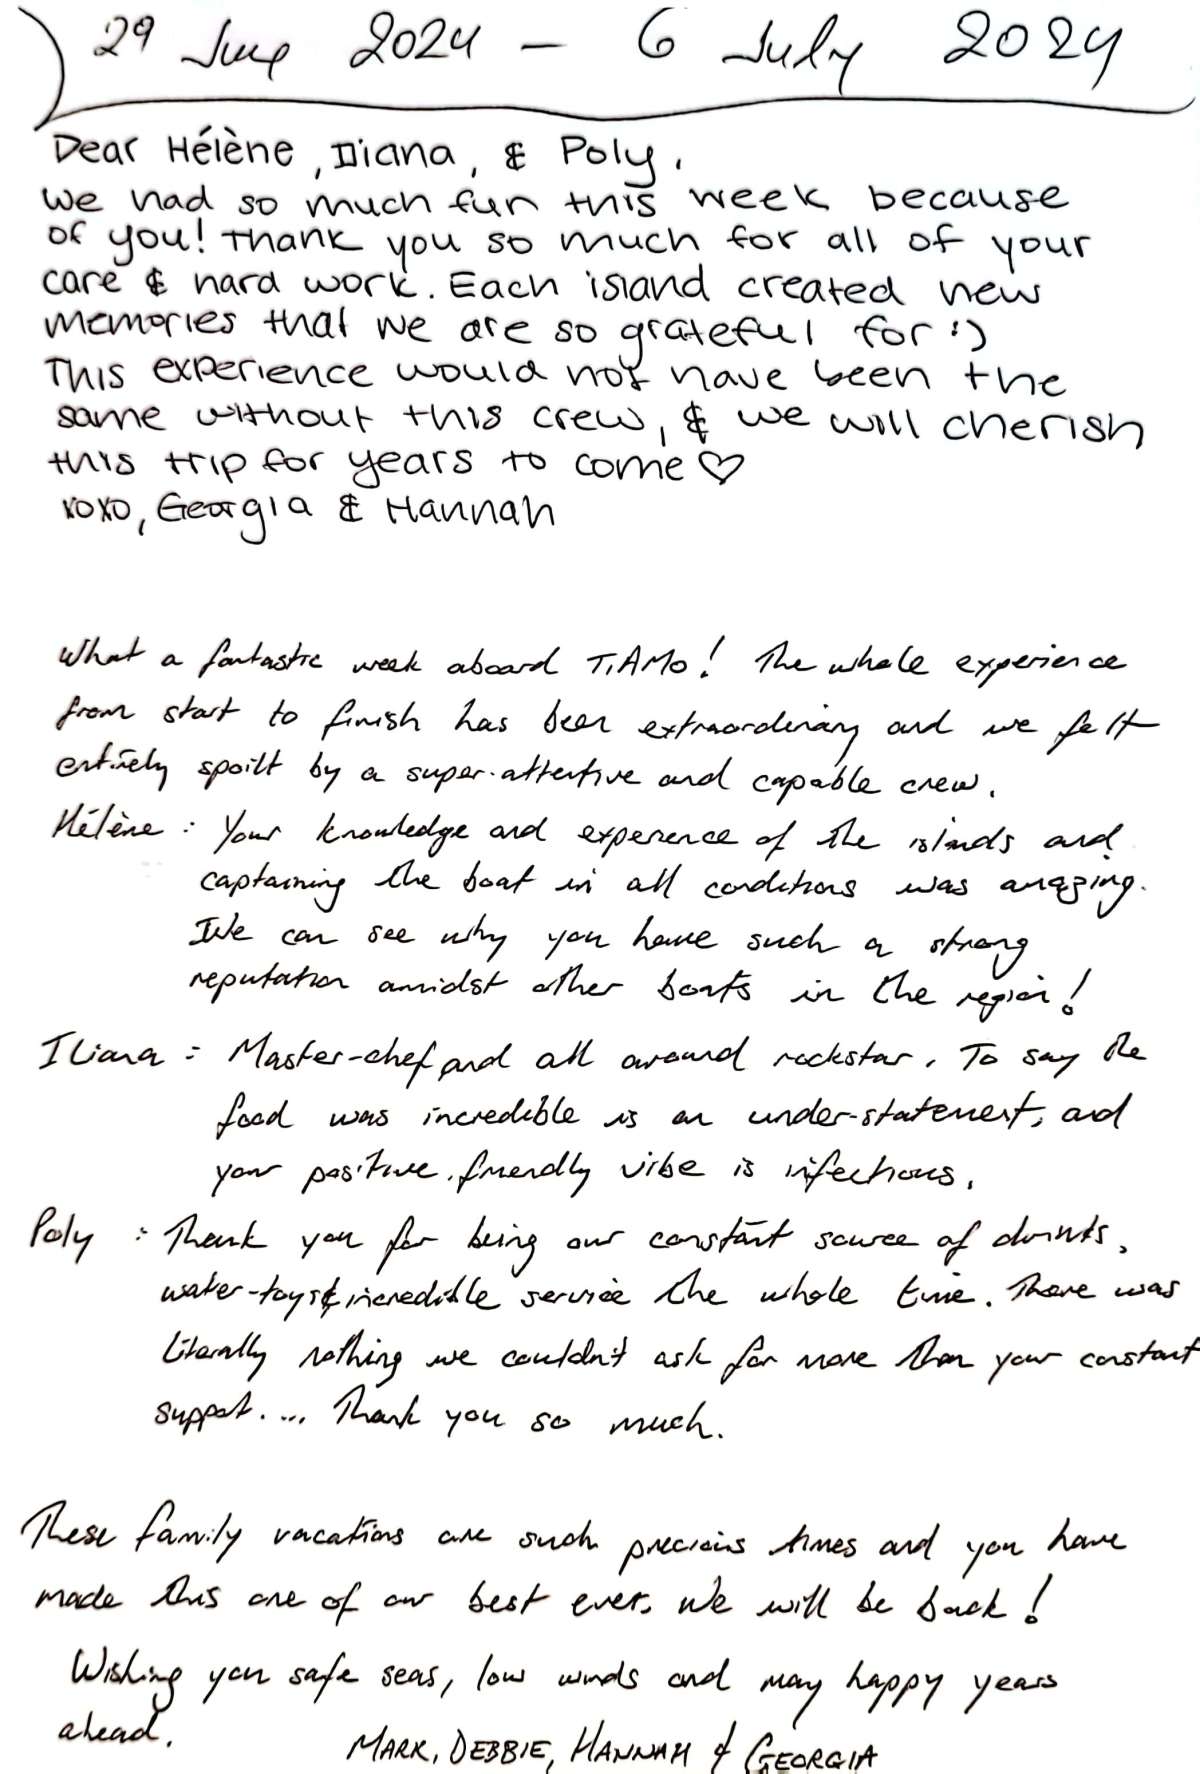 29 June 2024 – 6 July 2024
Dear Hélène, Iliana, & Poly,
we had so much fun this week because
of you! Thank you so much for all of your
care & hard work. Each island created new
memories that we are so grateful for :)
This experience would not have been the
same without this crew, & we will cherish
this trip for years to come ♡
xoxo, Georgia & Hannah
What a fantastic week aboard TiAMo! The whole experience
from start to finish has been extraordinary and we felt
entirely spoilt by a super-attentive and capable crew.
Hélène: Your knowledge and experience of the islands and
captaining the boat in all conditions was amazing.
We can see why you have such a strong
reputation amidst other boats in the region!
Iliana: Master-chef and all around rockstar. To say the
food was incredible is an under-statement, and
your positive, friendly vibe is infectious.
Poly: Thank you for being our constant source of drinks,
water-toys & incredible service the whole time. There was
literally nothing we couldn't ask for more than your constant
support.... Thank you so much.
These family vacations are such precious times and you have
made this one of our best ever. We will be back!
Wishing you safe seas, low winds and may happy years
ahead.
MARK, DEBBIE, HANNAH & GEORGIA